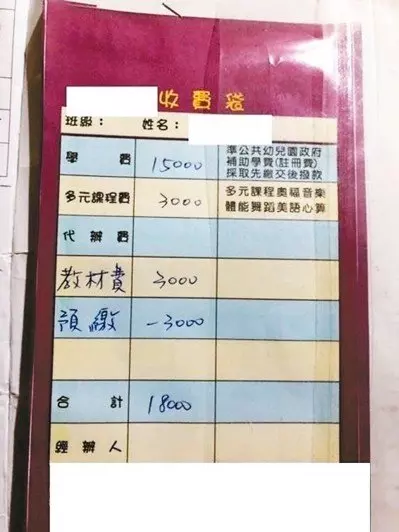 收費袋
班級： 姓名：
學費 15000 準公共幼兒園政府
補助學費(註冊費)
採取先繳交後撥款
多元課程費 3000 多元課程奧福音樂
體能舞蹈美語心算
代辦費
教材費 3000
預繳 -3000
合計 18000
經辦人